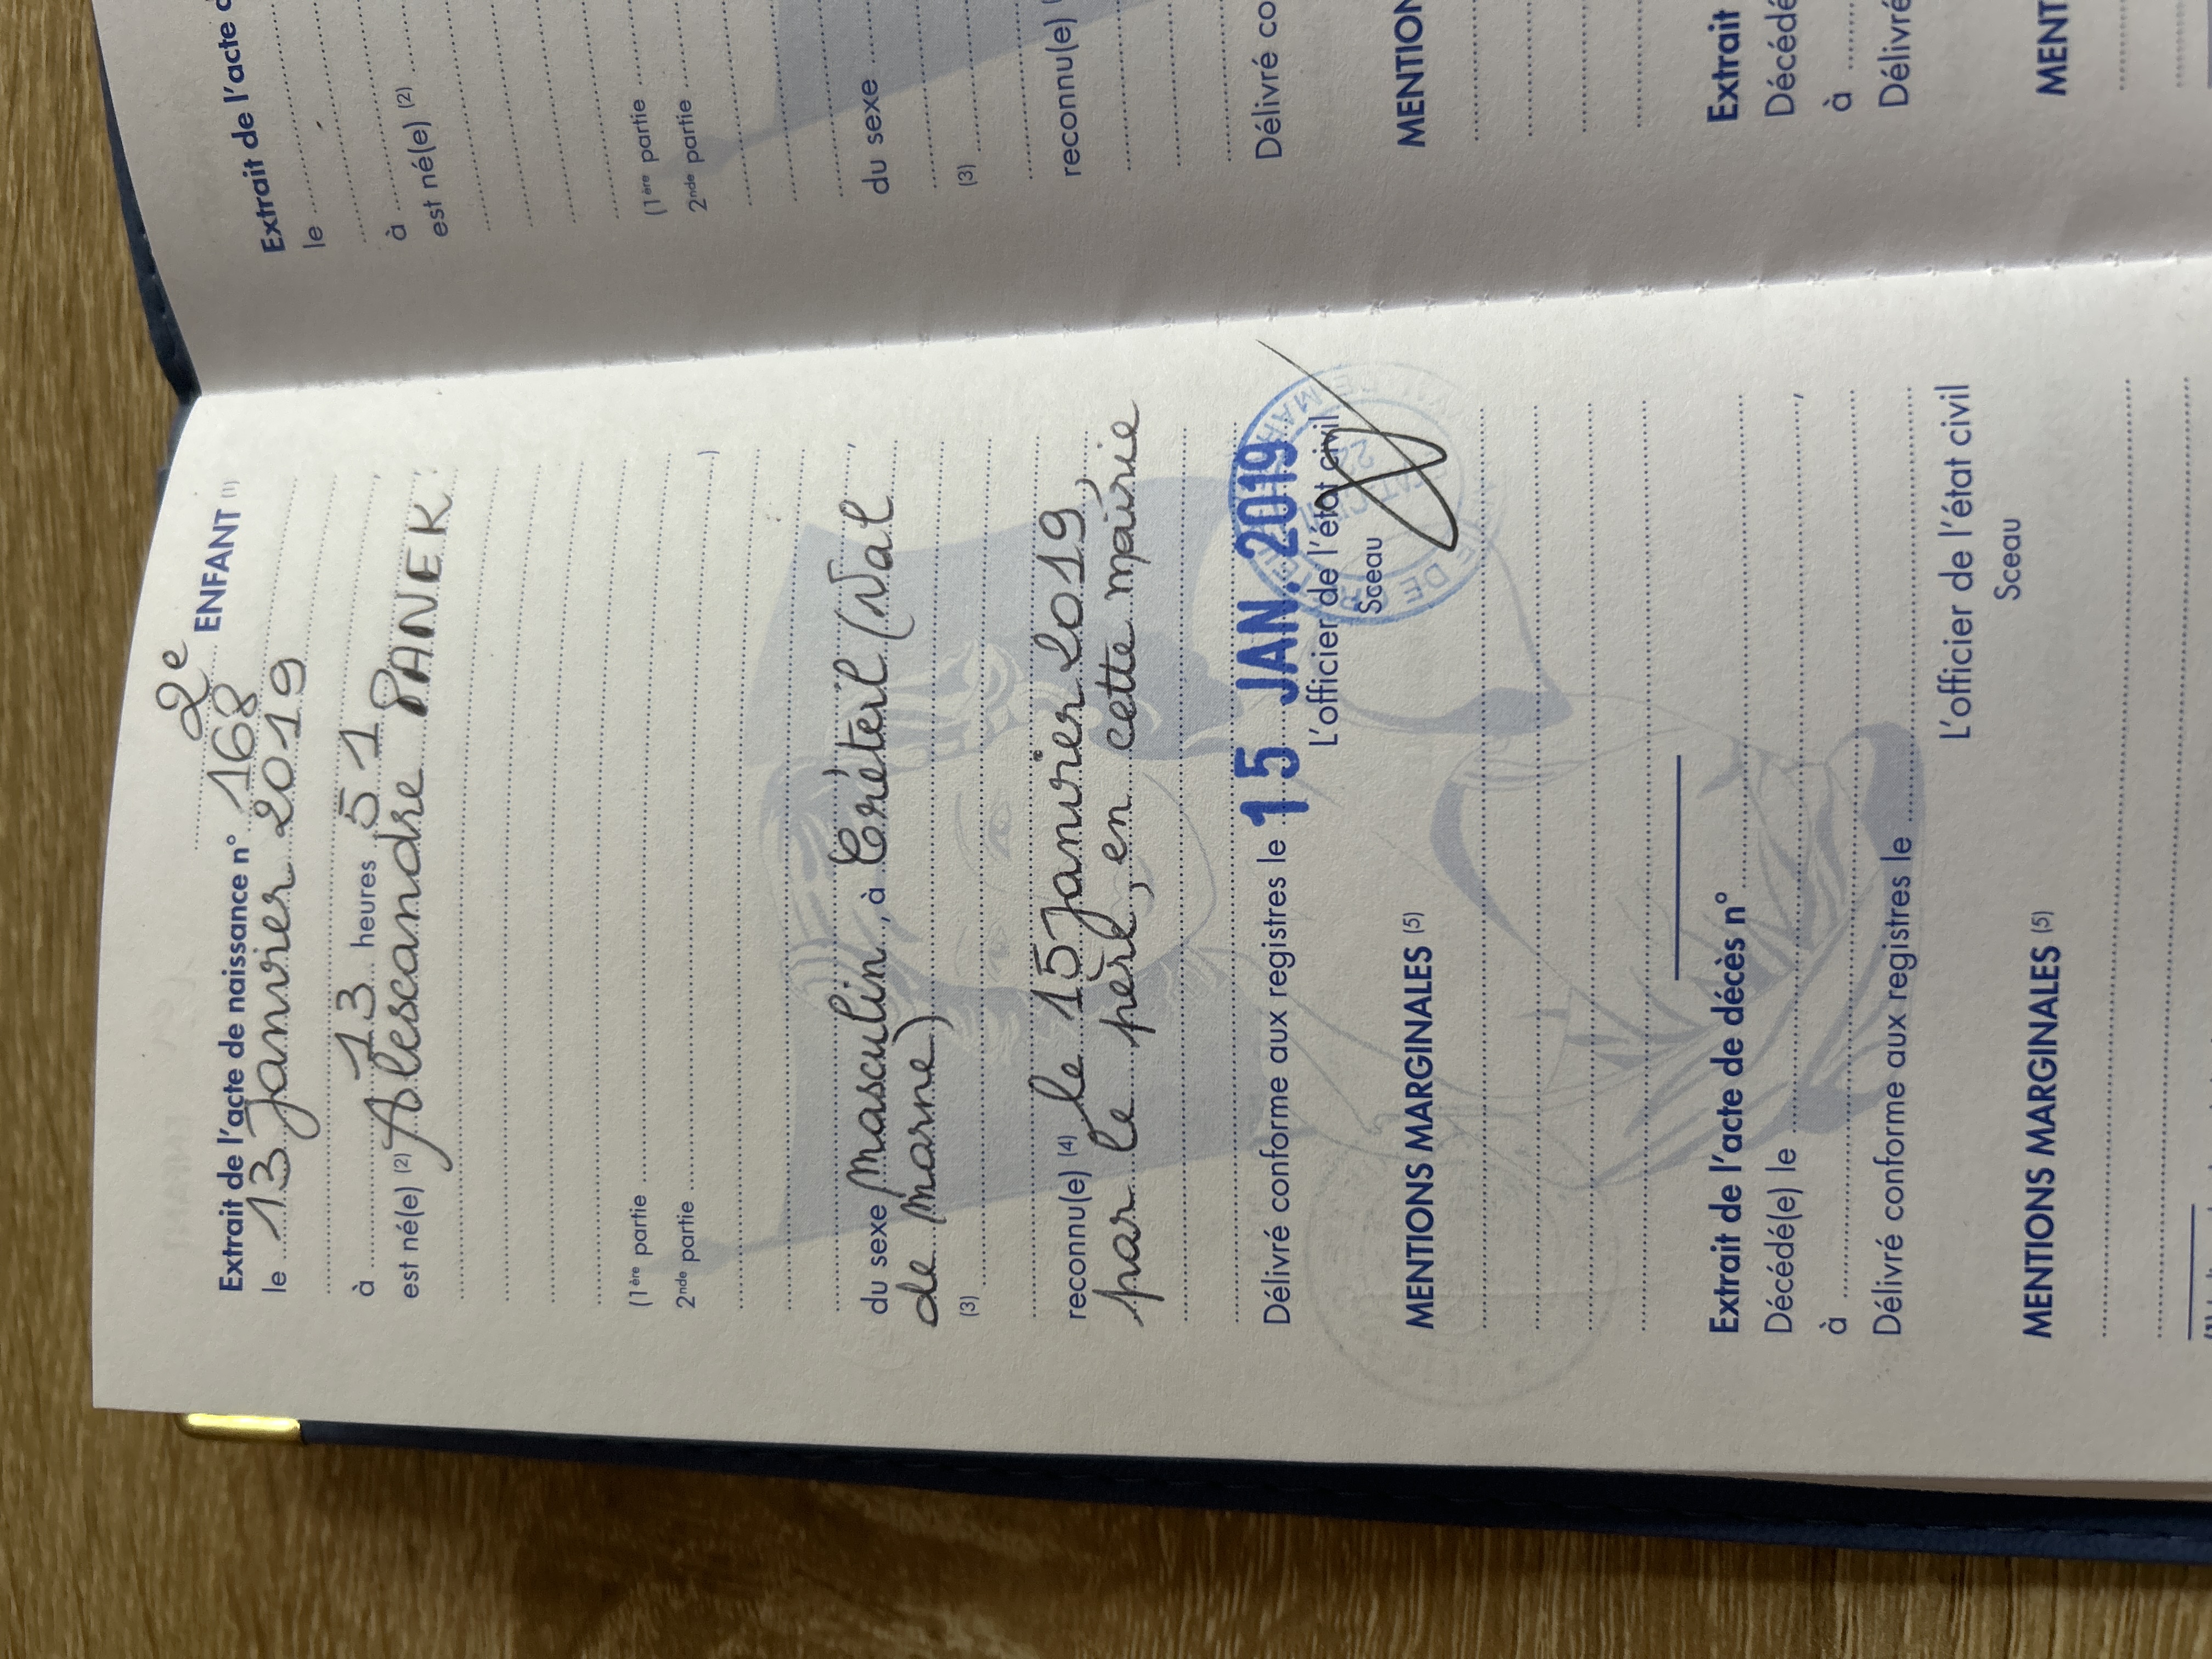 2e ENFANT (1)
Extrait de l'acte de naissance n° 168
le 13 janvier 2019
à 13 heures 51
est né(e) (2) Alescandre PANEK
(1ère partie
2nde partie )
du sexe masculin, à Créteil (Val
de marne)
(3)
reconnu(e) (4) le 15 janvier 2019,
par le père, en cette mairie
Délivré conforme aux registres le 15 JAN. 2019
L'officier de l'état civil
Sceau
MENTIONS MARGINALES (5)
Extrait de l'acte de décès n°
Décédé(e) le ,
à
Délivré conforme aux registres le
L'officier de l'état civil
Sceau
MENTIONS MARGINALES (5)
Extrait de l'acte
le
à
est né(e) (2)
(1ère partie
2nde partie
du sexe
(3)
reconnu(e)
Délivré
MENTION
Extrait
Décédé
à
Délivré
MENT